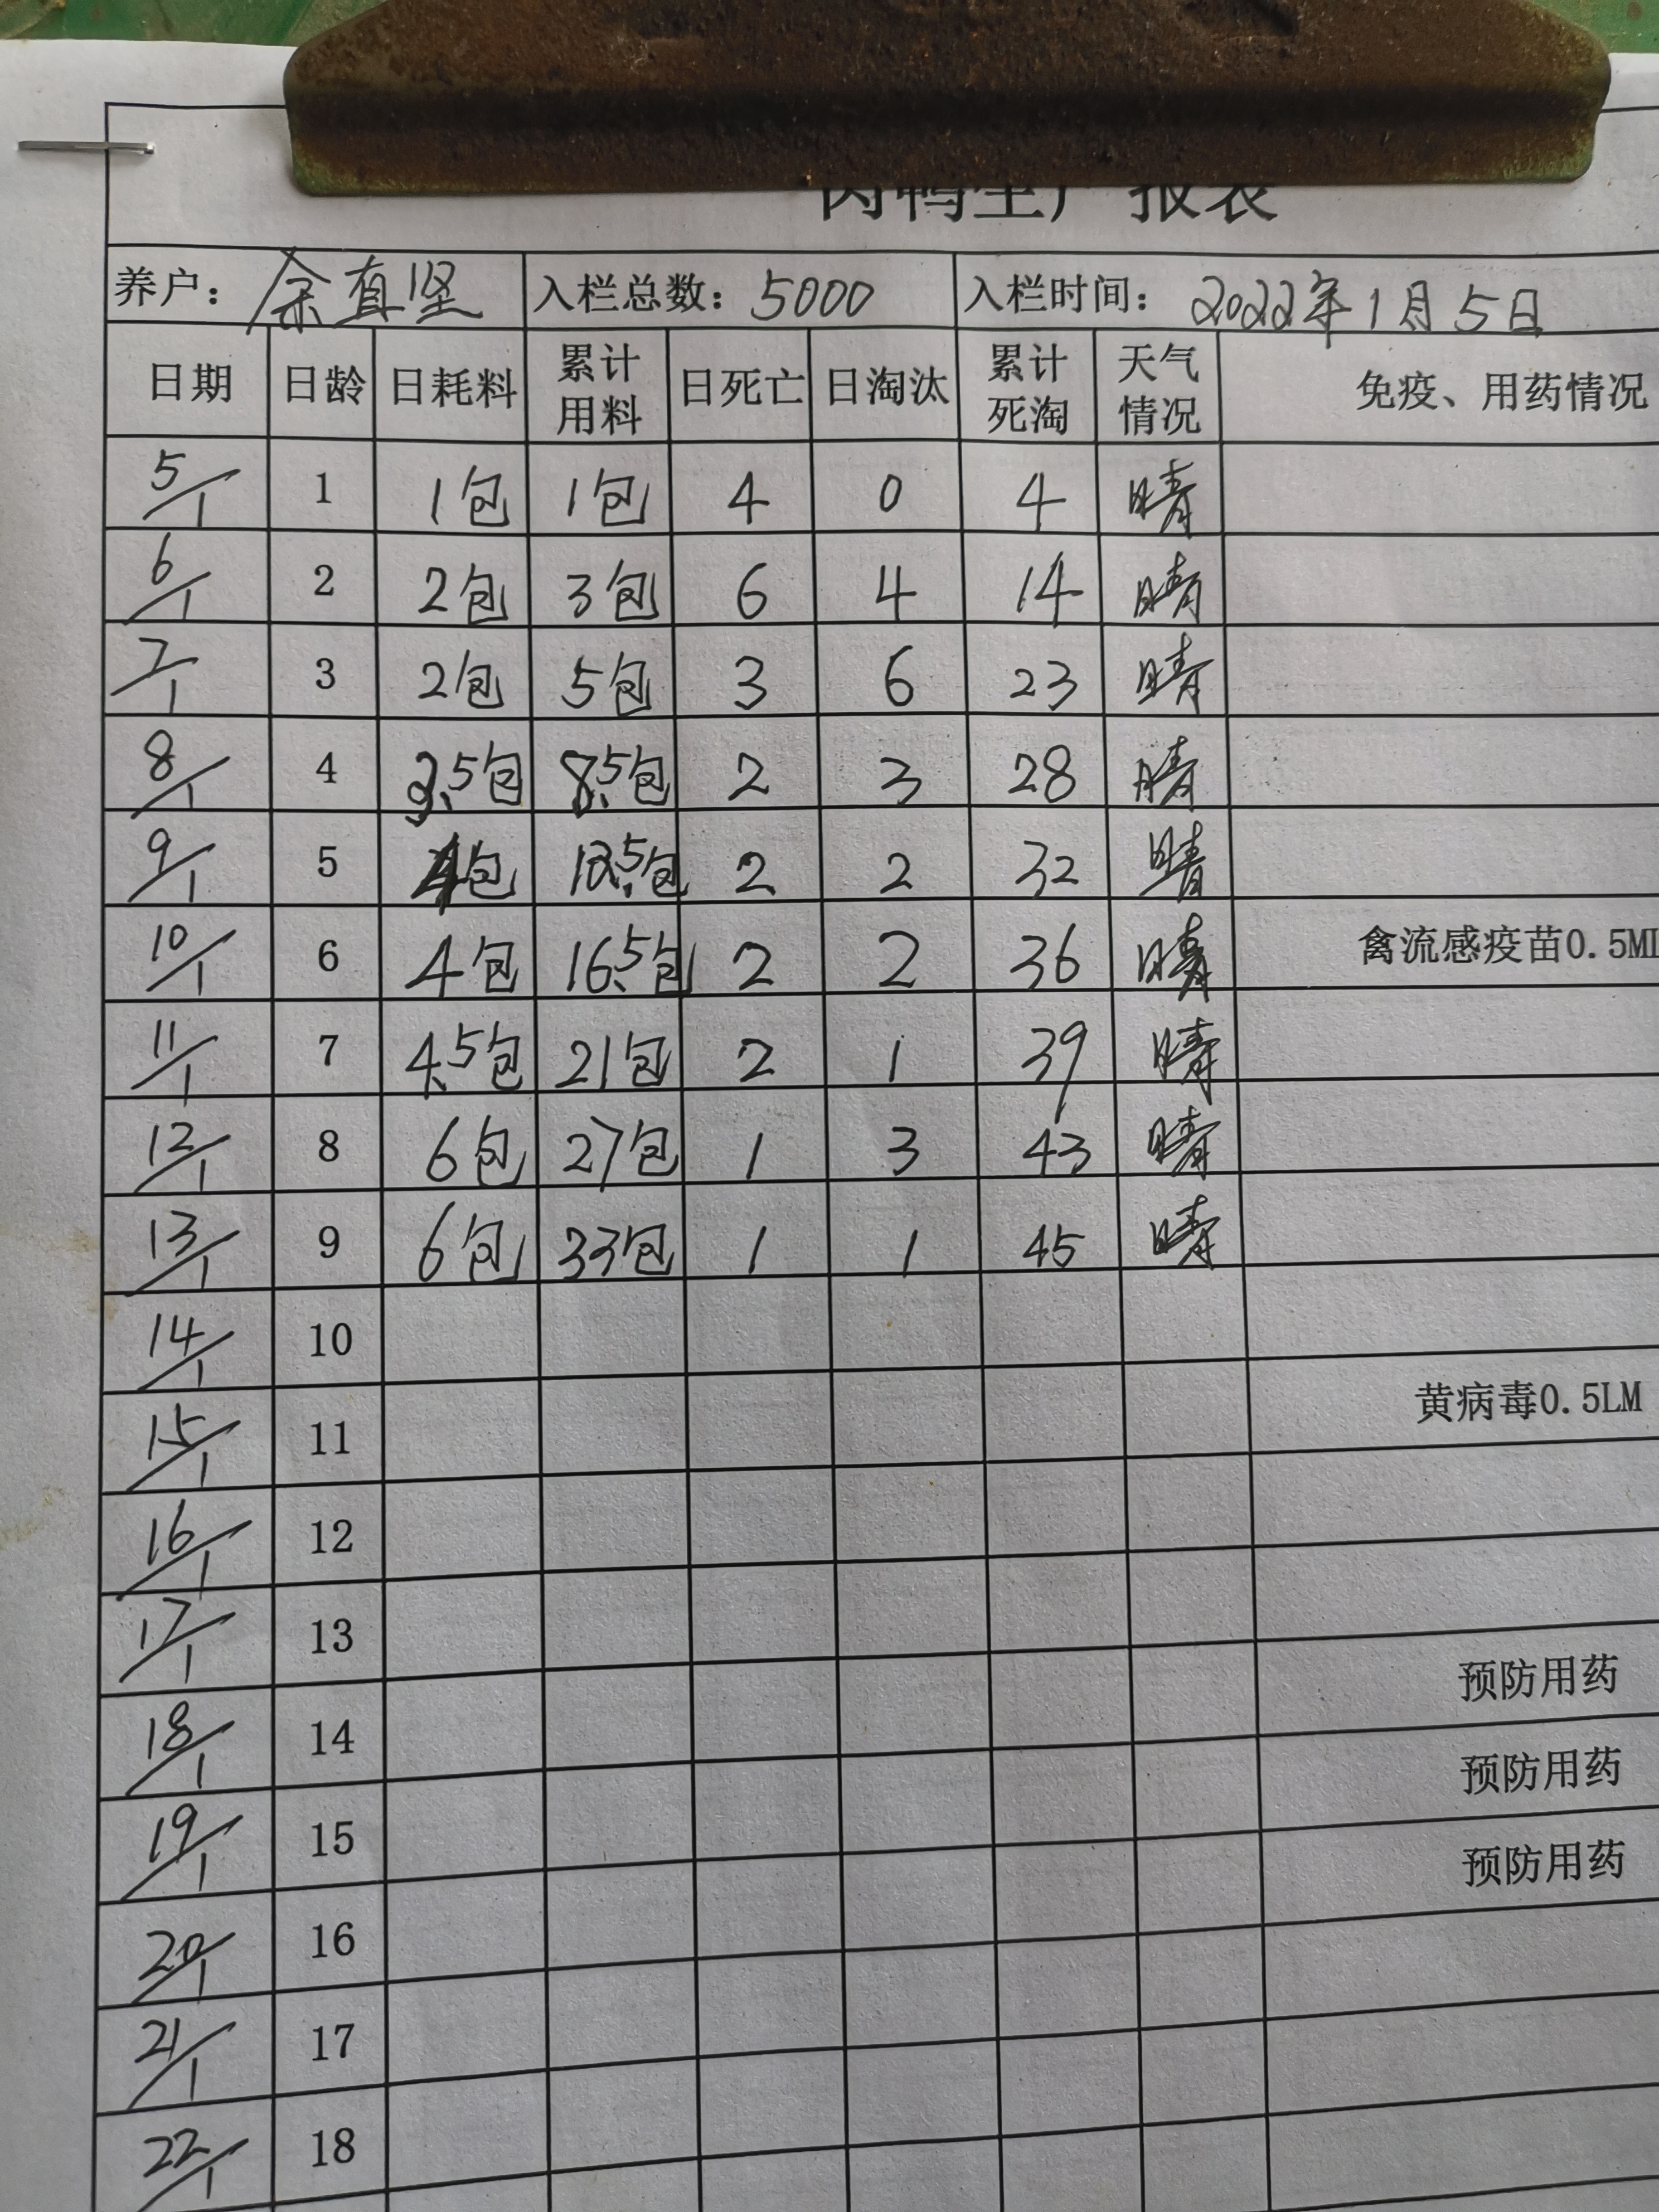 肉鸭生产报表
养户：余直坚 入栏总数：5000 入栏时间：2022年1月5日
日期 日龄 日耗料 累计用料 日死亡 日淘汰 累计死淘 天气情况 免疫、用药情况
5/1 1 1包 1包 4 0 4 晴
6/1 2 2包 3包 6 4 14 晴
7/1 3 2包 5包 3 6 23 晴
8/1 4 3.5包 8.5包 2 3 28 晴
9/1 5 4包 12.5包 2 2 32 晴
10/1 6 4包 16.5包 2 2 36 晴 禽流感疫苗0.5ML
11/1 7 4.5包 21包 2 1 39 晴
12/1 8 6包 27包 1 3 43 晴
13/1 9 6包 33包 1 1 45 晴
14/1 10
15/1 11 黄病毒0.5LM
16/1 12
17/1 13
18/1 14 预防用药
19/1 15 预防用药
20/1 16 预防用药
21/1 17
22/1 18